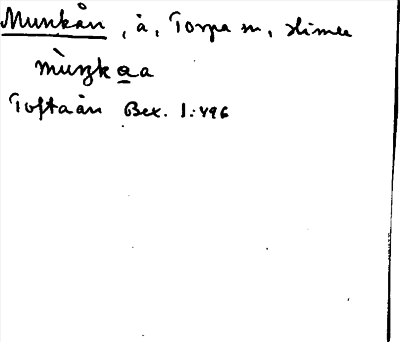 Munkån, å, Torpa sn, Kinds
mùŋkａa
Toftaån Bex. 1:496